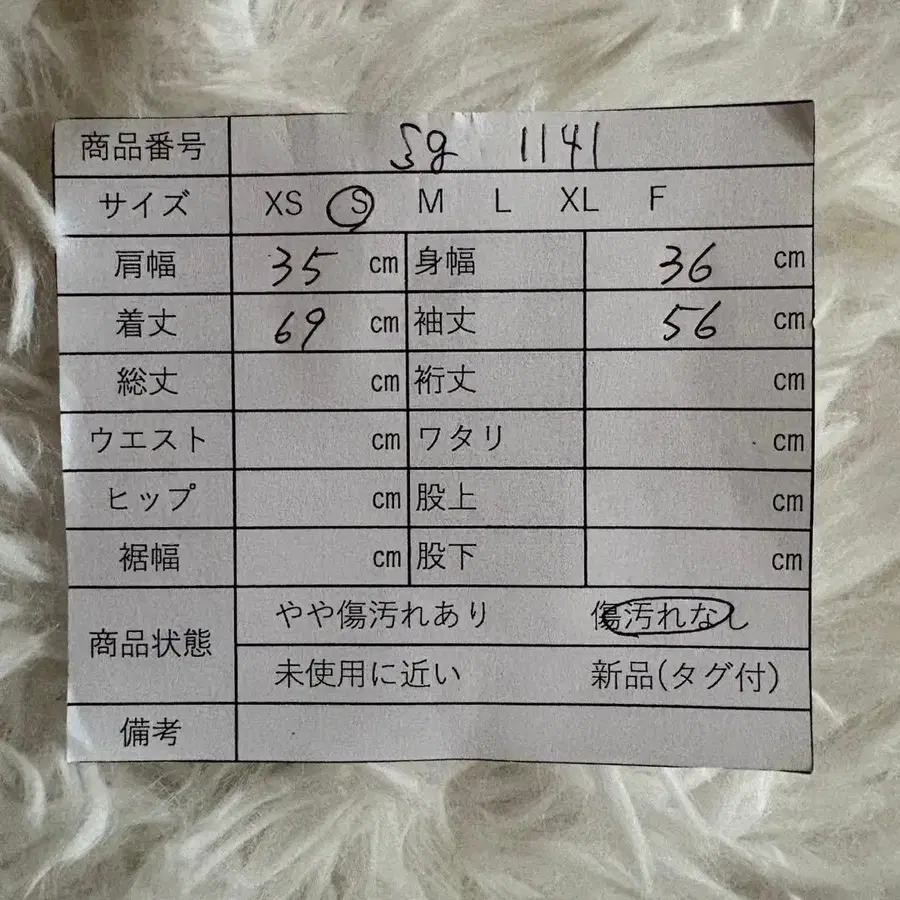 商品番号 Sg 1141
サイズ XS S M L XL F
肩幅 35 cm 身幅 36 cm
着丈 69 cm 袖丈 56 cm
総丈 cm 裄丈 cm
ウエスト cm ワタリ cm
ヒップ cm 股上 cm
裾幅 cm 股下 cm
商品状態 やや傷汚れあり 傷汚れなし
未使用に近い 新品(タグ付)
備考